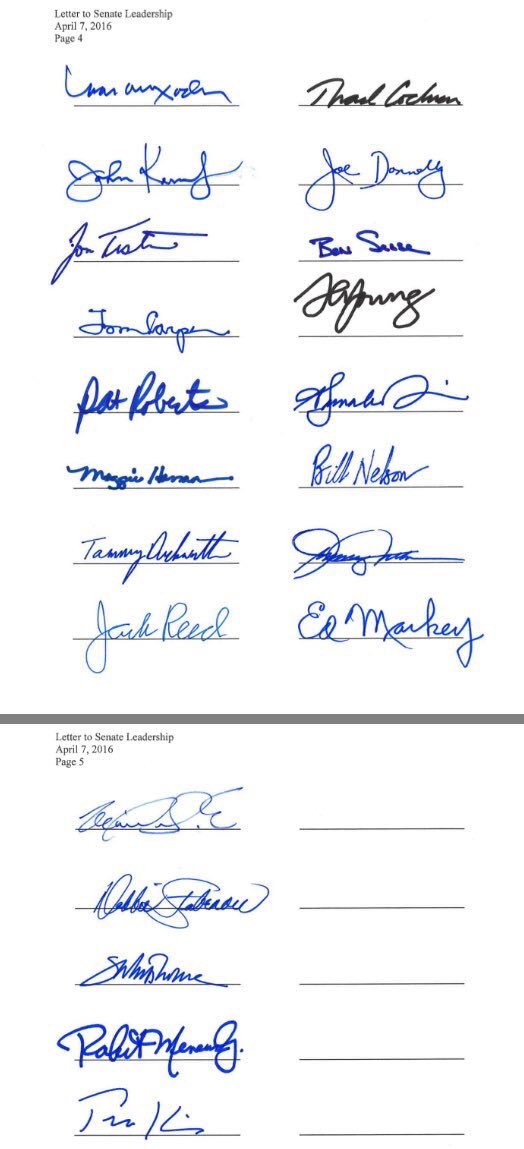 Letter to Senate Leadership
April 7, 2016
Page 4
Thad Cochran
John Joe Donnelly
Jon Tester Ben Sasse
Young
Tom Carper
Pat Roberts
Maggie Hassan Bill Nelson
Tammy Duckworth
Jack Reed Ed Markey
Letter to Senate Leadership
April 7, 2016
Page 5
Debbie Stabenow
Robert Menendez